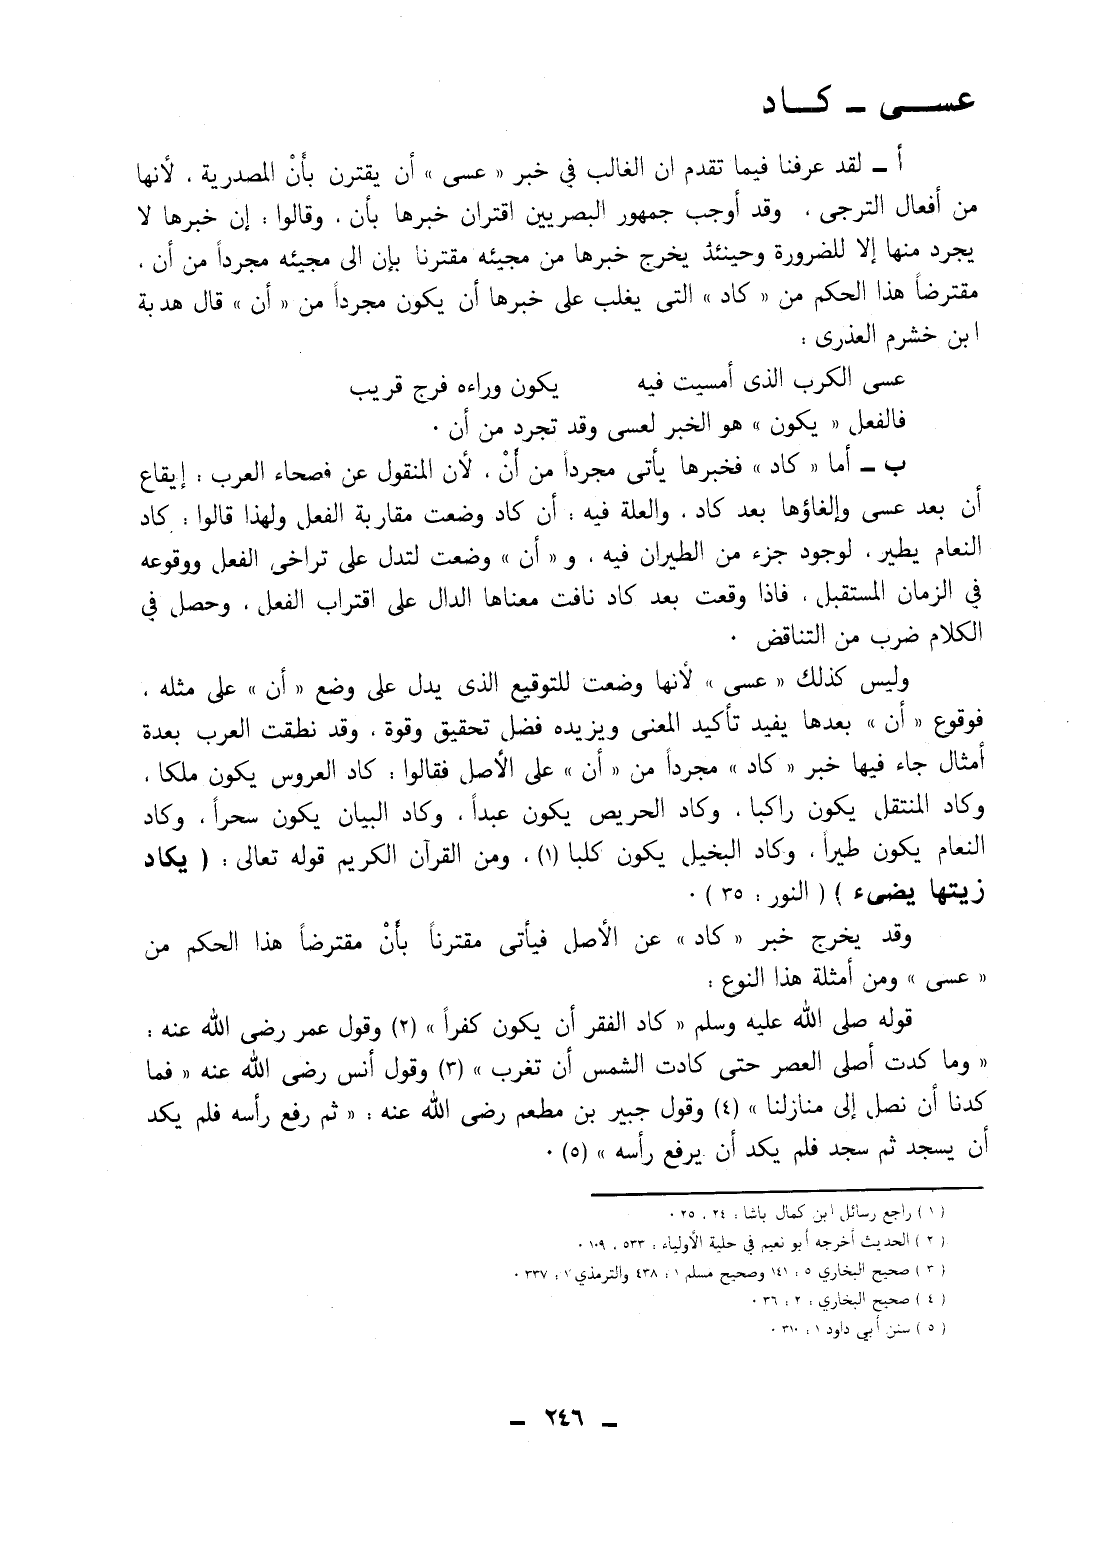 عســـى ـ كـــاد
أ ـ لقد عرفنا فيما تقدم ان الغالب في خبر « عسى » أن يقترن بأنْ المصدرية ، لأنها
من أفعال الترجى ، وقد أوجب جمهور البصريين اقتران خبرها بأن ، وقالوا : إن خبرها لا
يجرد منها إلا للضرورة وحينئذ يخرج خبرها من مجيئه مقترنا بإن الى مجيئه مجرداً من أن ،
مقترضاً هذا الحكم من « كاد » التى يغلب على خبرها أن يكون مجرداً من « أن » قال هدبة
ابن خشرم العذرى :
عسى الكرب الذى أمسيت فيه يكون وراءه فرج قريب
فالفعل « يكون » هو الخبر لعسى وقد تجرد من أن .
ب ـ أما « كاد » فخبرها يأتى مجرداً من أَنْ ، لأن المنقول عن فصحاء العرب : إيقاع
أن بعد عسى وإلغاؤها بعد كاد ، والعلة فيه : أن كاد وضعت مقاربة الفعل ولهذا قالوا : كاد
النعام يطير ، لوجود جزء من الطيران فيه ، و « أن » وضعت لتدل على تراخى الفعل ووقوعه
في الزمان المستقبل ، فاذا وقعت بعد كاد نافت معناها الدال على اقتراب الفعل ، وحصل في
الكلام ضرب من التناقض .
وليس كذلك « عسى » لأنها وضعت للتوقيع الذى يدل على وضع « أن » على مثله ،
فوقوع « أن » بعدها يفيد تأكيد المعنى ويزيده فضل تحقيق وقوة ، وقد نطقت العرب بعدة
أمثال جاء فيها خبر « كاد » مجرداً من « أن » على الأصل فقالوا : كاد العروس يكون ملكا ،
وكاد المنتقل يكون راكبا ، وكاد الحريص يكون عبداً ، وكاد البيان يكون سحراً ، وكاد
النعام يكون طيراً ، وكاد البخيل يكون كلبا (١) ، ومن القرآن الكريم قوله تعالى : ( يكاد
زيتها يضىء ) ( النور : ٣٥ ) .
وقد يخرج خبر « كاد » عن الأصل فيأتى مقترناً بأَنْ مقترضاً هذا الحكم من
« عسى » ومن أمثلة هذا النوع :
قوله صلى الله عليه وسلم « كاد الفقر أن يكون كفراً » (٢) وقول عمر رضى الله عنه :
« وما كدت أصلى العصر حتى كادت الشمس أن تغرب » (٣) وقول أنس رضى الله عنه « فما
كدنا أن نصل إلى منازلنا » (٤) وقول جبير بن مطعم رضى الله عنه : « ثم رفع رأسه فلم يكد
أن يسجد ثم سجد فلم يكد أن يرفع رأسه » (٥) .
( ١ ) راجع رسائل ابن كمال باشا : ٢٤ ، ٢٥ .
( ٢ ) الحديث أخرجه أبو نعيم في حلية الأولياء : ٥٣٣ ، ١٠٩ .
( ٣ ) صحيح البخاري ٥ : ١٤١ وصحيح مسلم ١ : ٤٣٨ والترمذي ٢ : ٣٣٧ .
( ٤ ) صحيح البخاري : ٢ : ٣٦ .
( ٥ ) سنن أبي داود ١ : ٣١٠ .
ـ ٢٤٦ ـ